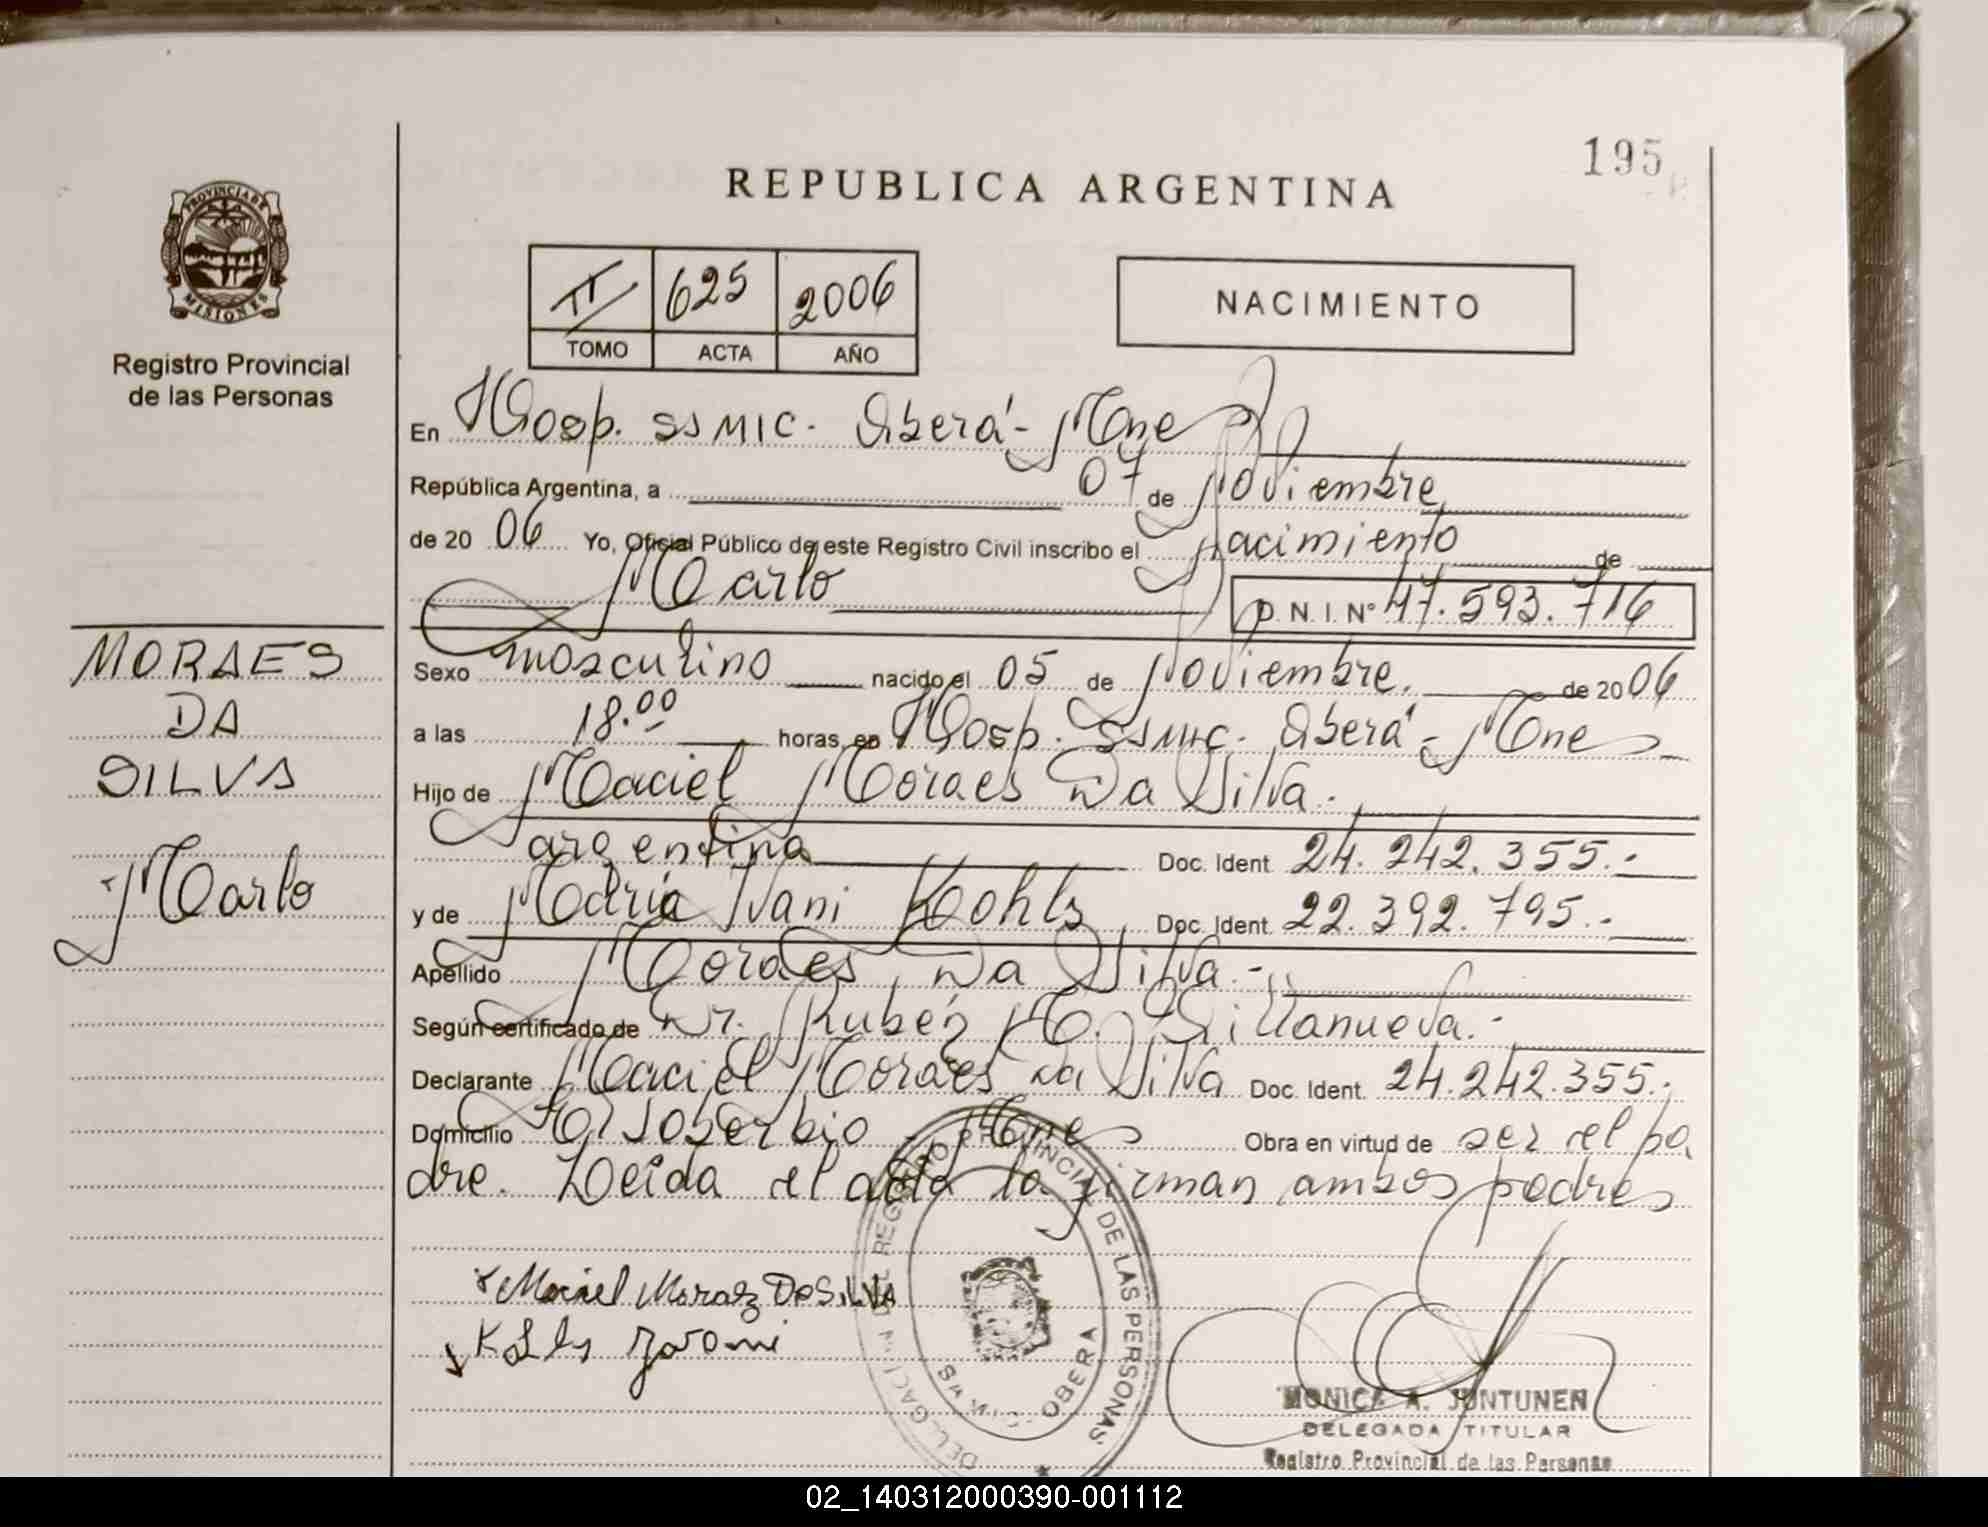 195
REPUBLICA ARGENTINA
PROVINCIA DE
MISIONES
Registro Provincial
de las Personas
II 625 2006
TOMO ACTA AÑO
NACIMIENTO
En Hosp. SSMIC. Oberá - Mnes
República Argentina, a 07 de Noviembre
de 2006 Yo, Oficial Público de este Registro Civil inscribo el Nacimiento de
Marlo D.N.I. Nº 47.593.716
MORAES
DA
SILVA
Marlo
Sexo masculino nacido el 05 de Noviembre. de 2006
a las 18.00 horas, en Hosp. SSMIC. Oberá - Mnes
Hijo de Maciel Moraes Da Silva.
argentina Doc. Ident. 24.242.355.-
y de María Ivani Kohls Doc. Ident. 22.392.795.-
Apellido Moraes Da Silva.-
Según certificado de Dr. Rubén M. Villanueva.-
Declarante Maciel Moraes Da Silva Doc. Ident. 24.242.355.-
Domicilio El Soberbio - Mnes Obra en virtud de ser el pa
dre. Leída el acta la firman ambos padres
Maciel Moraes DaSILVA
REGISTRO PROVINCIAL DE LAS PERSONAS
OBERA
MONICA A. JUNTUNEN
DELEGADA TITULAR
Registro Provincial de las Personas
02_140312000390-001112